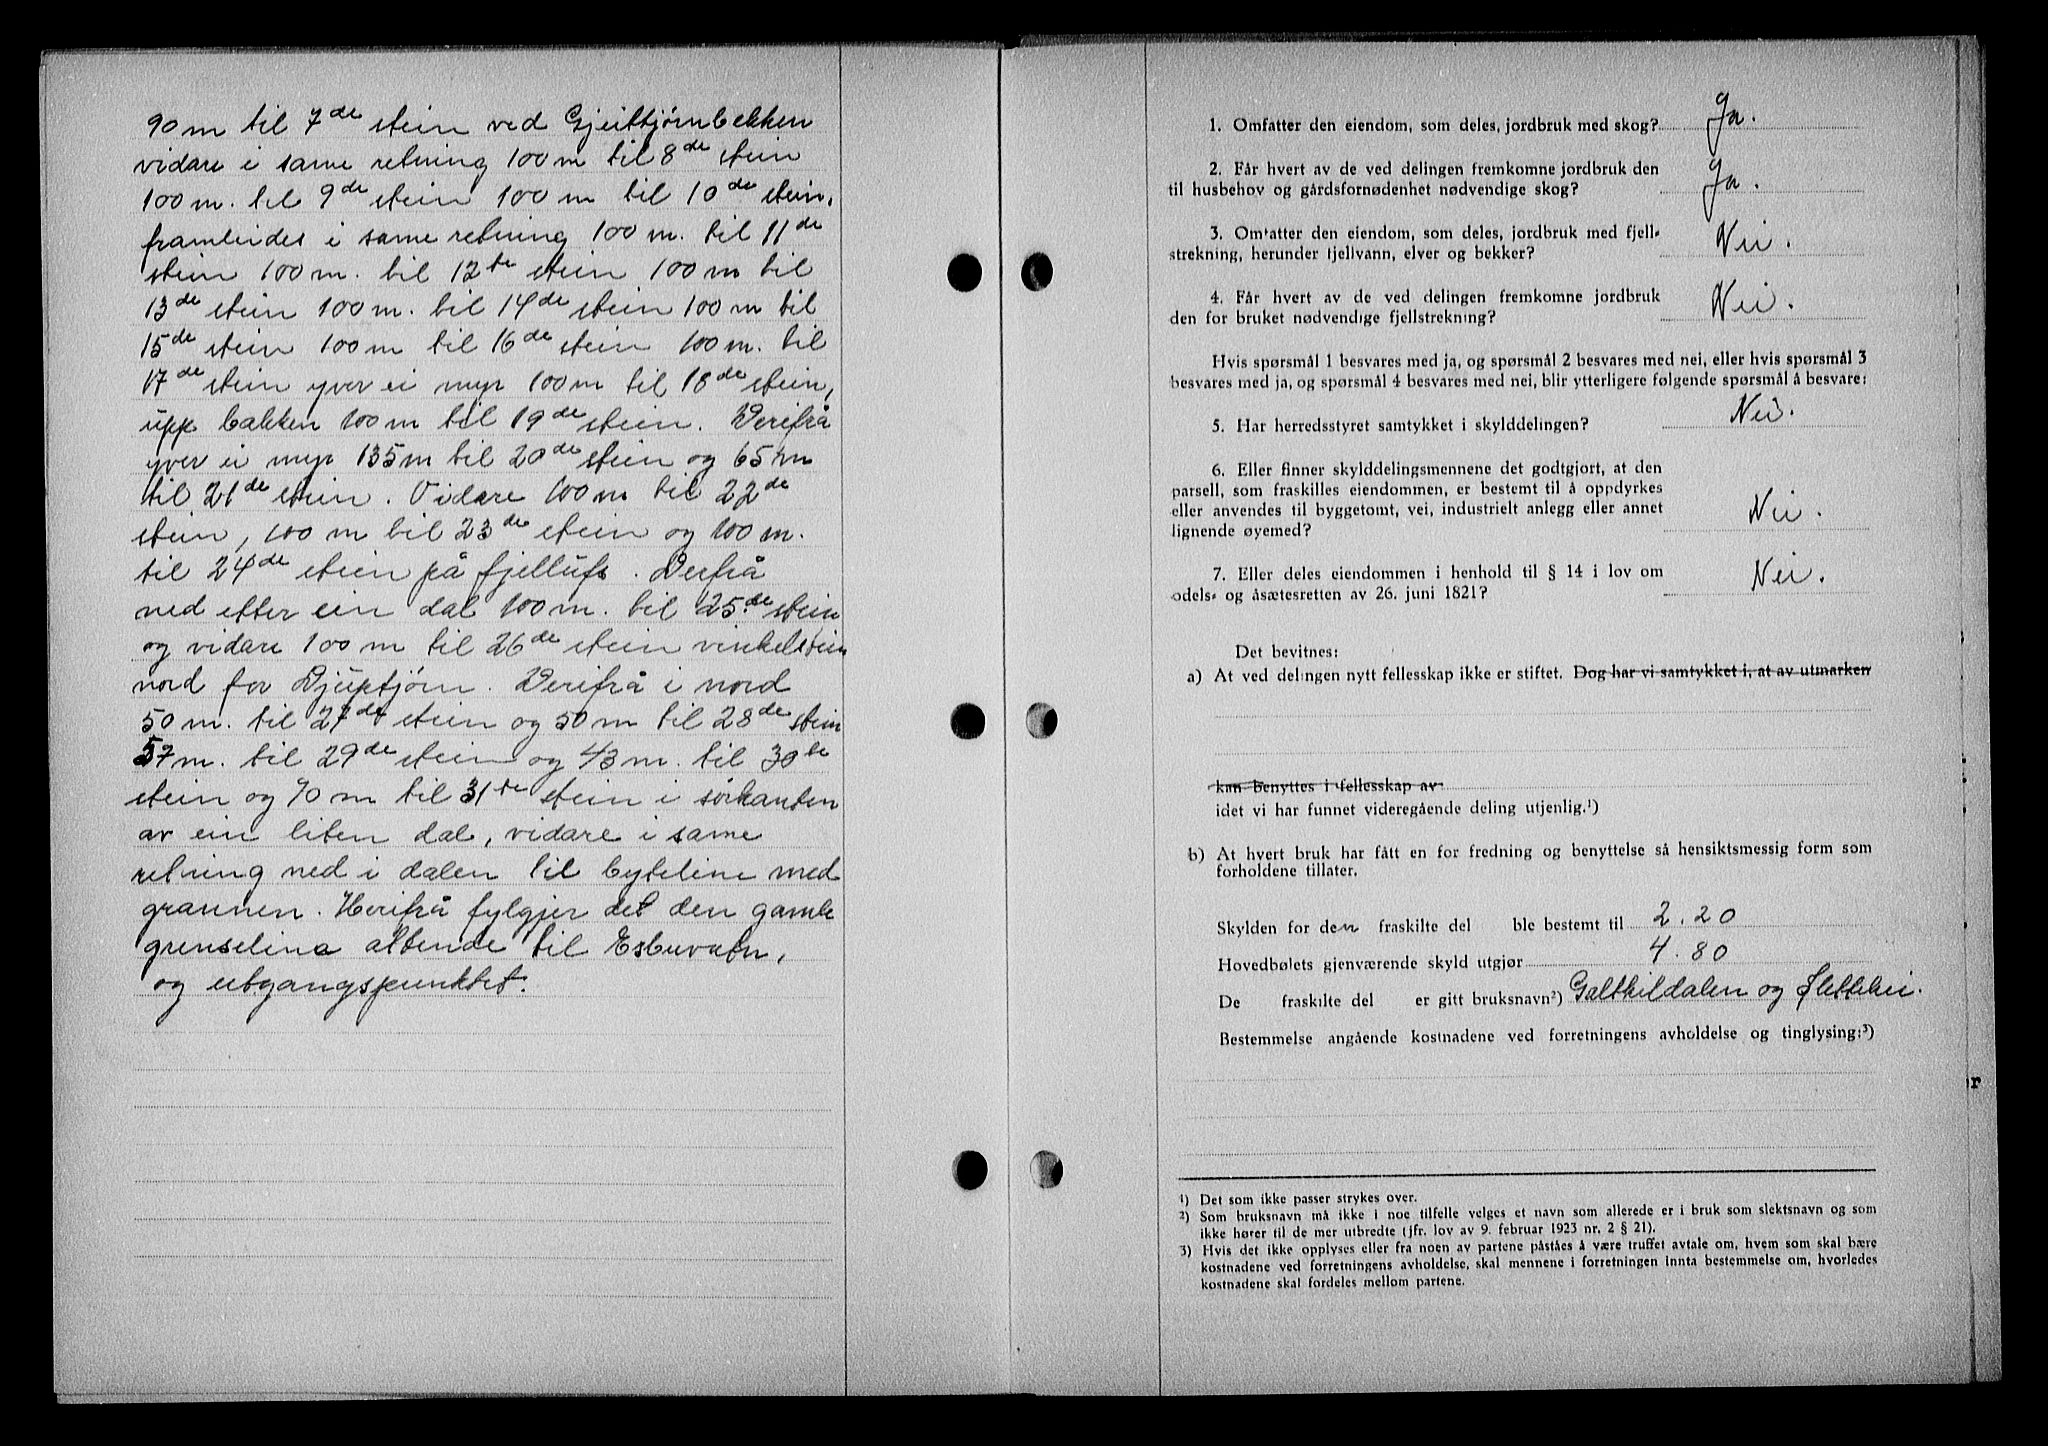 90 m til 7de stein ved Gjeittjørnbekken
vidare i same retning 100 m til 8de stein
100 m. til 9de stein 100 m til 10de stein,
framleides i same retning 100 m. til 11de
stein 100 m. til 12te stein 100 m til
13de stein 100 m. til 14de stein 100 m til
15de stein 100 m til 16de stein 100 m. til
17de stein yver ei myr 100 m til 18de stein,
upp bakken 100 m til 19de stein. Derifrå
yver ei myr 135 m til 20de stein og 65 m
til 21de stein. Vidare 100 m til 22de
stein, 100 m til 23de stein og 100 m.
til 24de stein på fjellufs. Derfrå
ned efter ein dal 100 m. til 25de stein
og vidare 100 m til 26de stein vinkelstein
nord for Djuptjørn. Derifrå i nord
50 m. til 27de stein og 50 m til 28de stein
57 m. til 29de stein og 43 m. til 30te
stein og 90 m til 31te stein i sørkanten
av ein liten dal, vidare i same
retning ned i dalen til byteline med
grannen. Herifrå fylgjer det den gamle
grenselina attende til Esbuvatn,
og utgangspunktet.
1. Omfatter den eiendom, som deles, jordbruk med skog? Ja.
2. Får hvert av de ved delingen fremkomne jordbruk den
til husbehov og gårdsfornødenhet nødvendige skog? Ja.
3. Omfatter den eiendom, som deles, jordbruk med fjell-
strekning, herunder fjellvann, elver og bekker? Nei.
4. Får hvert av de ved delingen fremkomne jordbruk
den for bruket nødvendige fjellstrekning? Nei.
Hvis spørsmål 1 besvares med ja, og spørsmål 2 besvares med nei, eller hvis spørsmål 3
besvares med ja, og spørsmål 4 besvares med nei, blir ytterligere følgende spørsmål å besvare:
5. Har herredsstyret samtykket i skylddelingen? Nei.
6. Eller finner skylddelingsmennene det godtgjort, at den
parsell, som fraskilles eiendommen, er bestemt til å oppdyrkes
eller anvendes til byggetomt, vei, industrielt anlegg eller annet
lignende øyemed? Nei.
7. Eller deles eiendommen i henhold til § 14 i lov om
odels- og åsætesretten av 26. juni 1821? Nei.
Det bevitnes:
a) At ved delingen nytt fellesskap ikke er stiftet. Dog har vi samtykket i, at av utmarken
kan benyttes i fellesskap av
idet vi har funnet videregående deling utjenlig.¹)
b) At hvert bruk har fått en for fredning og benyttelse så hensiktsmessig form som
forholdene tillater.
Skylden for den fraskilte del ble bestemt til 2.20
Hovedbølets gjenværende skyld utgjør 4.80
De fraskilte del er gitt bruksnavn²) Galthildalen og Slettehei.
Bestemmelse angående kostnadene ved forretningens avholdelse og tinglysing:³)
¹) Det som ikke passer strykes over.
²) Som bruksnavn må ikke i noe tilfelle velges et navn som allerede er i bruk som slektsnavn og som
ikke hører til de mer utbredte (jfr. lov av 9. februar 1923 nr. 2 § 21).
3) Hvis det ikke opplyses eller fra noen av partene påståes å være truffet avtale om, hvem som skal bære
kostnadene ved forretningens avholdelse, skal mennene i forretningen innta bestemmelse om, hvorledes
kostnadene skal fordeles mellom partene.